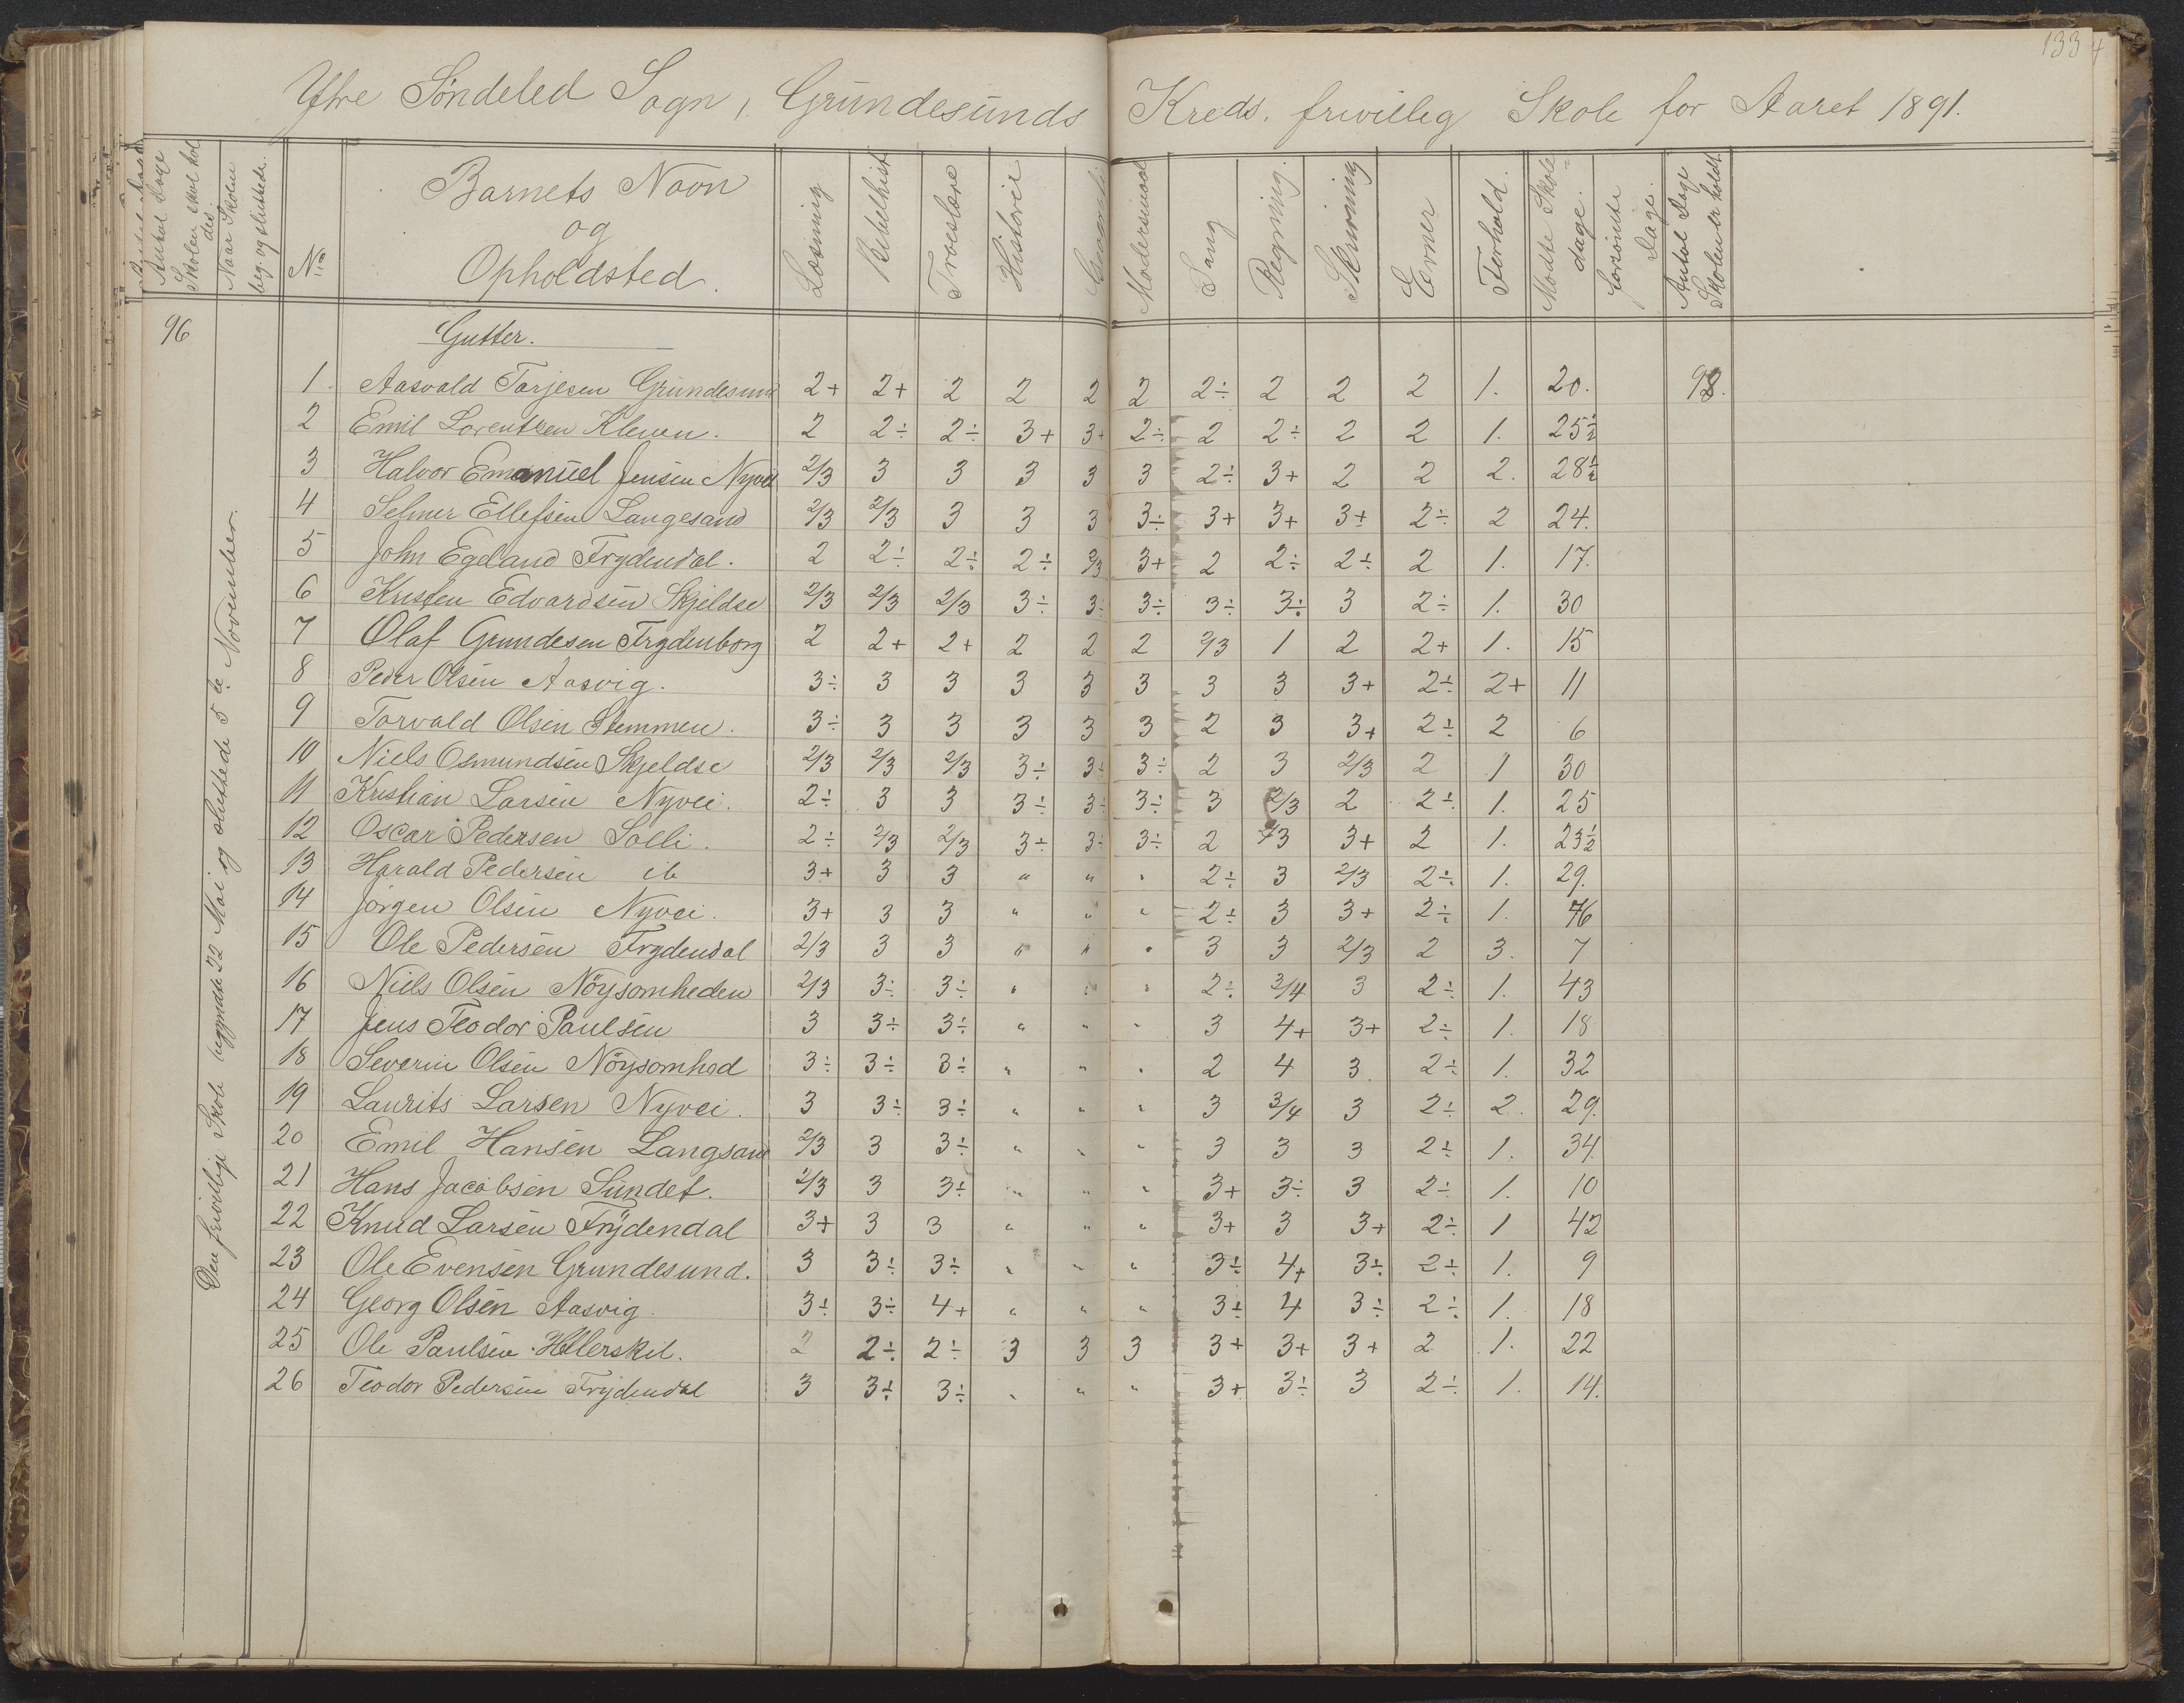 133
Ytre Söndeled Sogn, Grundesunds Kreds. frivillig Skole for Aaret 1891.
Antal Dage Skolen skal holdes
Naar Skolen beg. og sluttede.
No
Barnets Navn og Opholdsted.
Læsning
Bibelhist
Troeslære
Historie
Geografi
Modersmaal
Sang
Regning.
Skrivning
Evner
Forhold.
Mødte Skoledage.
forsømte Dage.
Antal Dage Skolen er holdt.
96
Den frivillige Skole begyndte 22 Mai og sluttede 5te November.
Gutter.
1 Aasvald Tarjesen Grundesund 2+ 2+ 2 2 2 2 2÷ 2 2 2 1. 20. 98.
2 Emil Lorentzen Kleven. 2 2÷ 2÷ 3+ 3+ 2÷ 2 2÷ 2 2 1. 25½
3 Halvor Emanuel Jensen Nyvei 2/3 3 3 3 3 3 2÷ 3+ 2 2 2. 28½
4 Selmer Ellefsen Langesand 2/3 2/3 3 3 3 3÷ 3+ 3+ 3+ 2÷ 2 24.
5 John Egeland Frydendal. 2 2÷ 2÷ 2÷ 2/3 3+ 2 2÷ 2÷ 2 1. 17.
6 Kristen Edvardsen Skjeldsø 2/3 2/3 2/3 3÷ 3÷ 3÷ 3÷ 3÷ 3 2÷ 1. 30
7 Olaf Gundesen Frydenborg 2 2+ 2+ 2 2 2 2/3 1 2 2+ 1. 15
8 Peder Olsen Aasvig. 3÷ 3 3 3 3 3 3 3 3+ 2÷ 2+ 11
9 Torvald Olsen Stemmen. 3÷ 3 3 3 3 3 2 3 3+ 2÷ 2 6
10 Niels Osmundsen Skjeldsø 2/3 2/3 2/3 3÷ 3÷ 3÷ 2 3 2/3 2 1 30
11 Kristian Larsen Nyvei. 2÷ 3 3 3÷ 3÷ 3÷ 3 2/3 2 2÷ 1. 25
12 Oscar Pedersen Solli. 2÷ 2/3 2/3 3÷ 3÷ 3÷ 2 2/3 3+ 2 1. 23½
13 Harald Pedersen ib 3+ 3 3 " " " 2÷ 3 2/3 2÷ 1. 29.
14 Jörgen Olsen Nyvei. 3+ 3 3 " " " 2÷ 3 3+ 2÷ 1. 46
15 Ole Pedersen Frydendal 2/3 3 3 " " " 3 3 2/3 2 3. 7
16 Niels Olsen Nöysomheden 2/3 3÷ 3÷ " " " 2÷ 3/4 3 2÷ 1. 43
17 Jens Teodor Paulsen 3 3÷ 3÷ " " " 3 4+ 3+ 2÷ 1. 18
18 Severin Olsen Nöysomhed 3÷ 3÷ 3÷ " " " 2 4 3. 2÷ 1. 32
19 Laurits Larsen Nyvei. 3 3÷ 3÷ " " " 3 3/4 3 2÷ 2. 29.
20 Emil Hansen Langsand 2/3 3 3÷ " " " 3 3 3 2÷ 1. 34.
21 Hans Jacobsen Sundet. 2/3 3 3÷ " " " 3+ 3÷ 3 2÷ 1. 10
22 Knud Larsen Frydendal 3+ 3 3 " " " 3+ 3 3+ 2÷ 1 42
23 Ole Evensen Grundesund. 3 3÷ 3÷ " " " 3÷ 4+ 3÷ 2÷ 1. 9
24 Georg Olsen Aasvig. 3÷ 3÷ 4+ " " " 3÷ 4 3÷ 2÷ 1. 18
25 Ole Paulsen Hellerskil. 2 2÷ 2÷ 3 3 3 3+ 3+ 3+ 2 1. 22
26 Teodor Pedersen Frydendal 3 3÷ 3÷ " " " 3+ 3÷ 3 2÷ 1. 14.